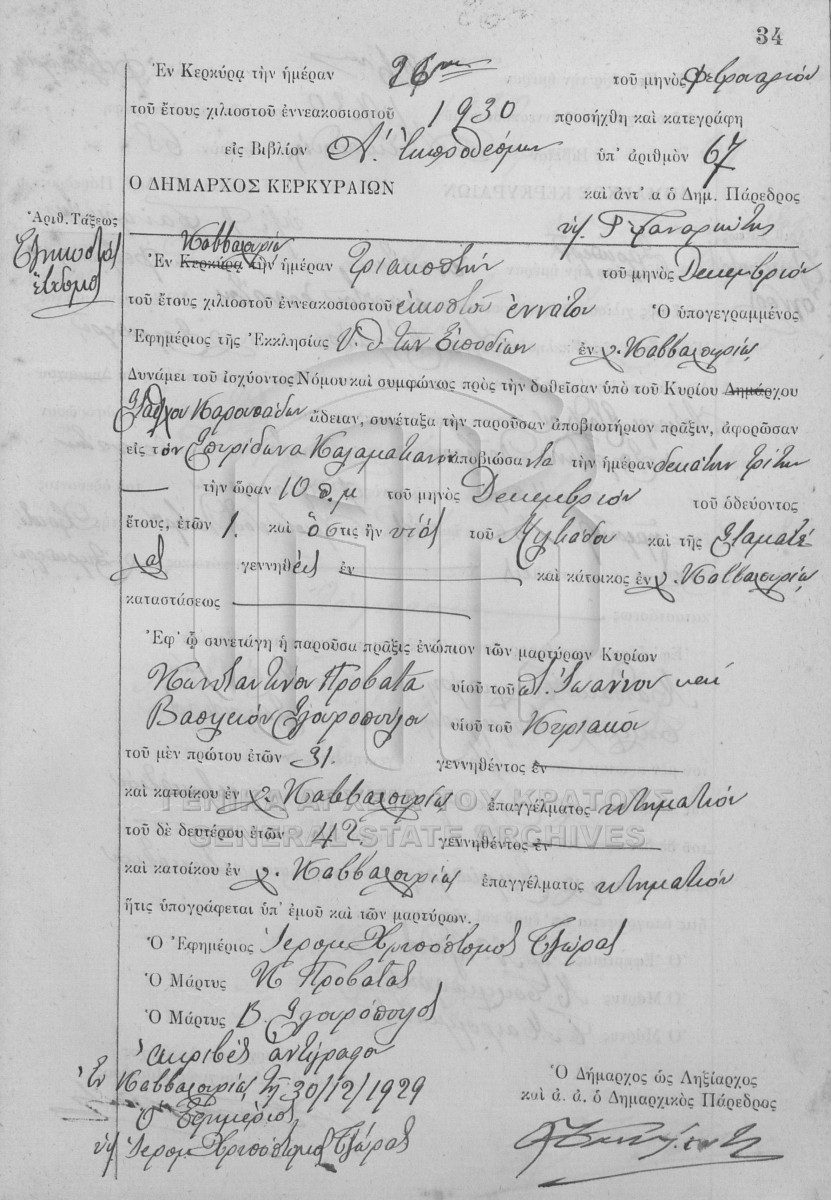 34
Ἐν Κερκύρᾳ τὴν ἡμέραν 26ην τοῦ μηνὸς Φεβρουαρίου
τοῦ ἔτους χιλιοστοῦ ἐννεακοσιοστοῦ 1930 προσήχθη καὶ κατεγράφη
εἰς Βιβλίον Α'. Ἐκπροθέσμων ὑπ' ἀριθμὸν 67
Ὁ ΔΗΜΑΡΧΟΣ ΚΕΡΚΥΡΑΙΩΝ
καὶ ἀντ' α ὁ Δημ. Πάρεδρος
Ἀριθ. Τάξεως
Καββαλουρίᾳ
Ἐν Κερκύρᾳ τὴν ἡμέραν τριακοστήν τοῦ μηνὸς Δεκεμβρίου
τοῦ ἔτους χιλιοστοῦ ἐννεακοσιοστοῦ εἰκοστοῦ ἐννάτου Ὁ ὑπογεγραμμένος
Ἐφημέριος τῆς Ἐκκλησίας Υ.Θ. τῶν Εἰσοδίων ἐν χ. Καββαλουρίᾳ
Δυνάμει τοῦ ἰσχύοντος Νόμου καὶ συμφώνως πρὸς τὴν δοθεῖσαν ὑπὸ τοῦ Κυρίου Δημάρχου
Καρουσάδων ἄδειαν, συνέταξα τὴν παροῦσαν ἀποβιωτήριον πρᾶξιν, ἀφορῶσαν
εἰς τὸν Σπυρίδωνα Καλαματιανὸν ἀποβιώσαντα τὴν ἡμέραν δεκάτην τρίτην
τὴν ὥραν 10 π.μ τοῦ μηνὸς Δεκεμβρίου τοῦ ὁδεύοντος
ἔτους, ἐτῶν 1. καὶ ὅστις ἦν υἱὸς τοῦ Μιλτιάδου καὶ τῆς Σταματέ
λας γεννηθεὶς ἐν καὶ κάτοικος ἐν χ. Καββαλουρίᾳ
καταστάσεως
Ἐφ' ᾧ συνετάγη ἡ παροῦσα πρᾶξις ἐνώπιον τῶν μαρτύρων Κυρίων
Κωνσταντίνου Προβατᾶ υἱοῦ τοῦ ποτ. Ἰωάννου καὶ
Βασιλείου Σγουροπούλου υἱοῦ τοῦ Κυριακοῦ
τοῦ μὲν πρώτου ἐτῶν 31. γεννηθέντος ἐν
καὶ κατοίκου ἐν χ. Καββαλουρίᾳ ἐπαγγέλματος κτηματίου
τοῦ δὲ δευτέρου ἐτῶν 42. γεννηθέντος ἐν
καὶ κατοίκου ἐν χ. Καββαλουρίᾳ ἐπαγγέλματος κτηματίου
ἥτις ὑπογράφεται ὑπ' ἐμοῦ καὶ τῶν μαρτύρων.
Ὁ Ἐφημέριος Ἱερομ. Χρυσόστομος Τζώρας
Ὁ Μάρτυς Κ Προβατᾶς
Ὁ Μάρτυς Β. Σγουρόπουλος
Ἀκριβὲς ἀντίγραφον
Ἐν Καββαλουρίᾳ τῇ 30/12/1929
Ὁ Ἐφημέριος
υπ Ἱερομ. Χρυσόστομος Τζώρας
Ὁ Δήμαρχος ὡς Ληξίαρχος
καὶ ἀ. ἀ. ὁ Δημαρχικὸς Πάρεδρος
ΓΕΝΙΚΑ ΑΡΧΕΙΑ ΤΟΥ ΚΡΑΤΟΥΣ
GENERAL STATE ARCHIVES